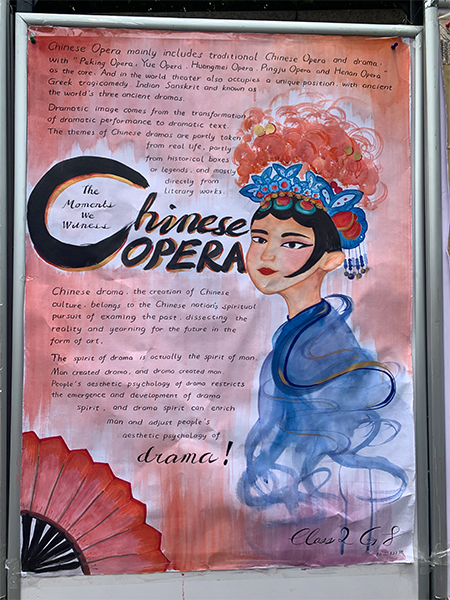 Chinese Opera mainly includes traditional Chinese Opera and drama,
with "Peking Opera, Yue Opera, Huangmei Opera, Pingju Opera and Henan Opera"
as the core. And in the world theater also occupies a unique position, with ancient
Greek tragicomedy, Indian Sanskrit and known as
the world's three ancient dramas.
Dramatic image comes from the transformation
of dramatic performance to dramatic text.
The themes of Chinese dramas are partly taken
from real life, partly
from historical boxes
or legends, and mostly
directly from
literary works.
The
Moments
We
Witness
Chinese
OPERA
Chinese drama, the creation of Chinese
culture, belongs to the Chinese nation's spiritual
pursuit of examing the past, dissecting the
reality and yearning for the future in the
form of art.
The spirit of drama is actually the spirit of man.
Man created drama, and drama created man.
People's aesthetic psychology of drama restricts
the emergence and development of drama
spirit, and drama spirit can enrich
man and adjust people's
aesthetic psychology of
drama!
Class 2 G 8